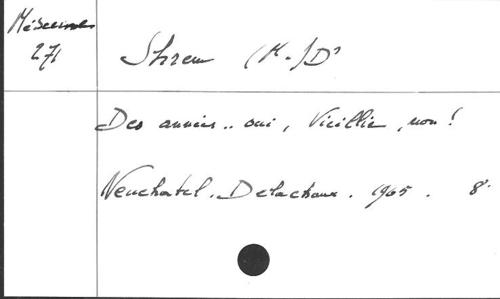 Médecine
271
Shrem (M.-) Dr
Des années.. oui, Vieillir, non!
Neuchatel. Delachaux. 1965. 8°.